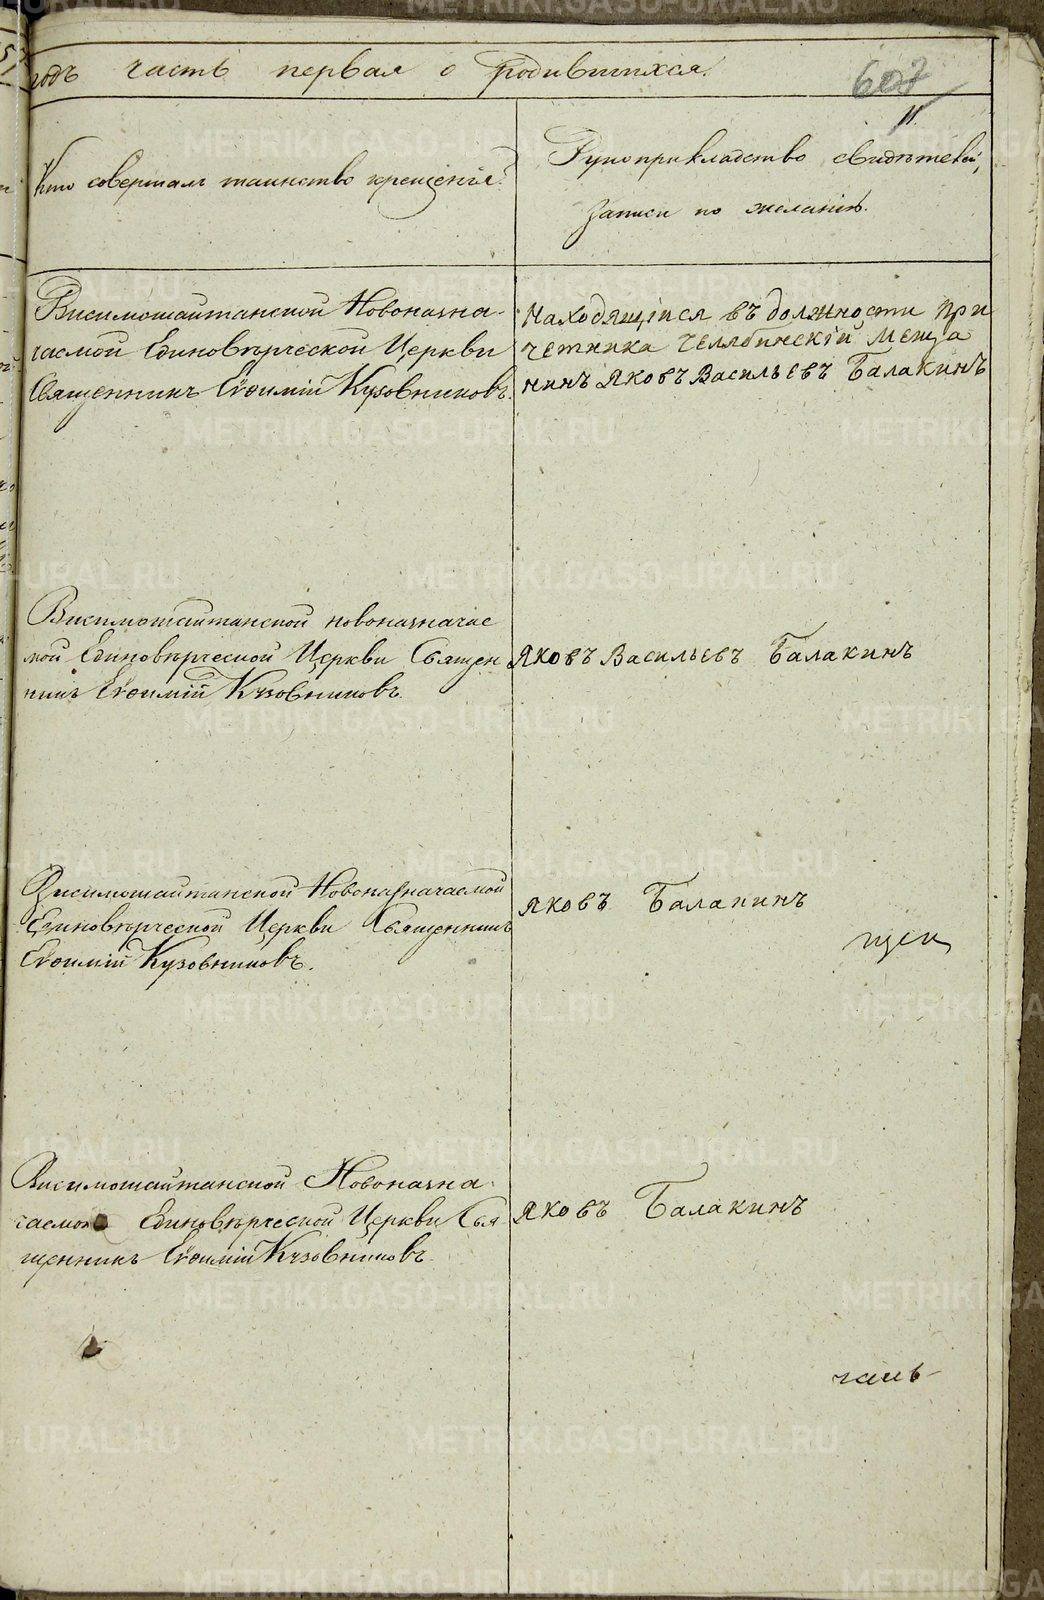 годъ часть первая о родившихся.
607
11.
Кто совершалъ таинство крещенія?
Рукоприкладство свидѣтелей,
записи по желанію.
Висимошайтанской Новоназна-
чаемой Единовѣрческой Церкви
Священникъ Евѳимій Кузовниковъ.
Находящійся въ должности При
четника Челябинскій Меща
нинъ Яковъ Васильевъ Балакинъ
Висимошайтанской новоназначае
мой Единовѣрческой Церкви Священ
никъ Евѳимій Кузовниковъ.
Яковъ Васильевъ Балакинъ
Висимошайтанской Новоназначаемой
Единовѣрческой Церкви Священникъ
Евѳимій Кузовниковъ.
Яковъ Балакинъ
Висимошайтанской Новоназна-
чаемой Единовѣрческой Церкви Свя
щенникъ Евѳимій Кузовниковъ.
Яковъ Балакинъ
METRIKI.GASO-URAL.RU